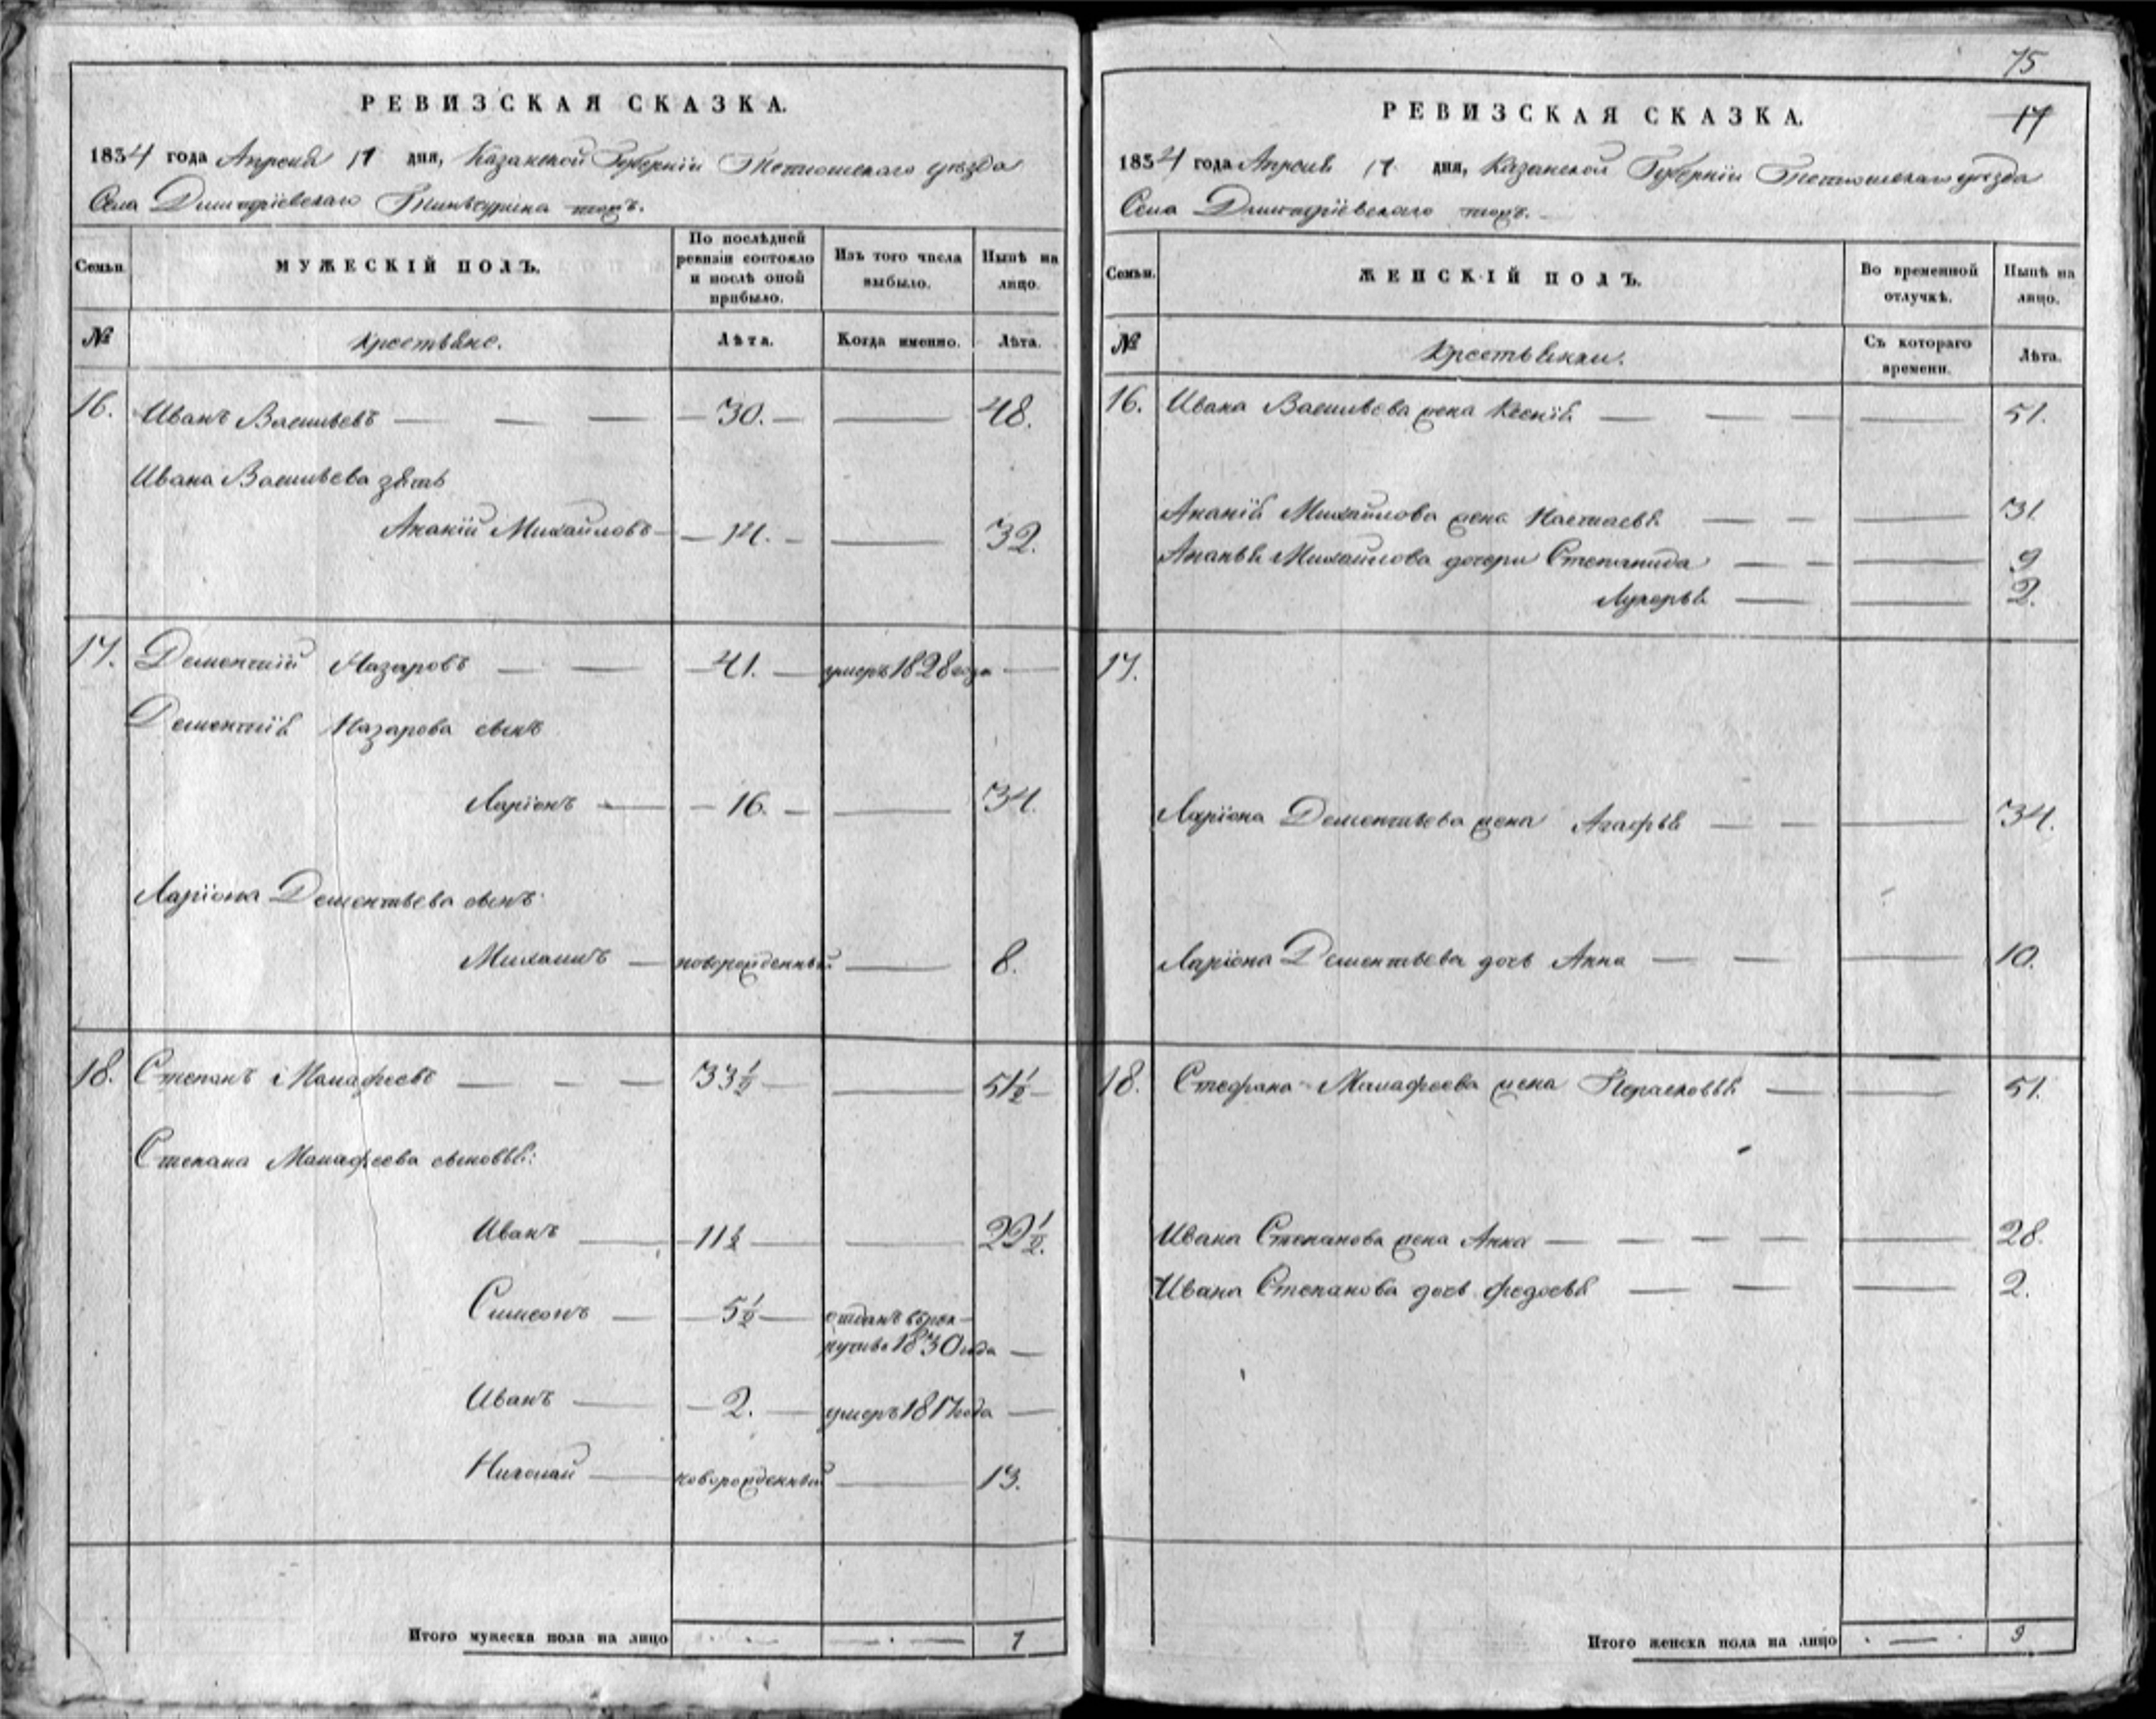 РЕВИЗСКАЯ СКАЗКА.
1834 года Апреля 17 дня, Казанской Губернiи Тетюшскаго уезда
Села Дмитрiевскаго тожъ.
Семьи.
МУЖЕСКIЙ ПОЛЪ.
По послѣдней ревизiи состояло и послѣ оной прибыло.
Изъ того числа выбыло.
Нынѣ на лицо.
№
Крестьяне.
Лѣта.
Когда именно.
Лѣта.
16. Иванъ Васильевъ — 30. — 48.
Ивана Васильева зять
Ананiй Михайловъ — 14. — 32.
17. Дементiй Назаровъ — 41. — умеръ 1828 года —
Дементiя Назарова сынъ
Ларiонъ — 16. — 34.
Ларiона Дементьева сынъ
Михаилъ — новорожденный — 8.
18. Степанъ Малафеевъ — 33 1/2 — 51 1/2
Степана Малафеева сыновья:
Иванъ — 11 1/2 — 29 1/2.
Симеонъ — 5 1/2 — отданъ въ рек-
руты 1830 года —
Иванъ — 2. — умеръ 1817 года —
Николай — новорожденный — 13.
Итого мужеска пола на лицо 7
75
17
РЕВИЗСКАЯ СКАЗКА.
1834 года Апреля 17 дня, Казанской Губернiи Тетюшскаго уезда
Села Дмитрiевскаго тожъ.
Семьи.
ЖЕНСКIЙ ПОЛЪ.
Во временной отлучкѣ.
Нынѣ на лицо.
№
Крестьянки.
Съ котораго времени.
Лѣта.
16. Ивана Васильева жена Ксенiя — 51.
Ананiя Михайлова жена Настасья — 31.
Ананья Михайлова дочери Степанида — 9
Лукерья — 2.
17.
Ларiона Дементьева жена Агафья — 34.
Ларiона Дементьева дочь Анна — 10.
18. Стефана Малафеева жена Парасковья — 51.
Ивана Степанова жена Анна — 28.
Ивана Степанова дочь Федосья — 2.
Итого женска пола на лицо 9